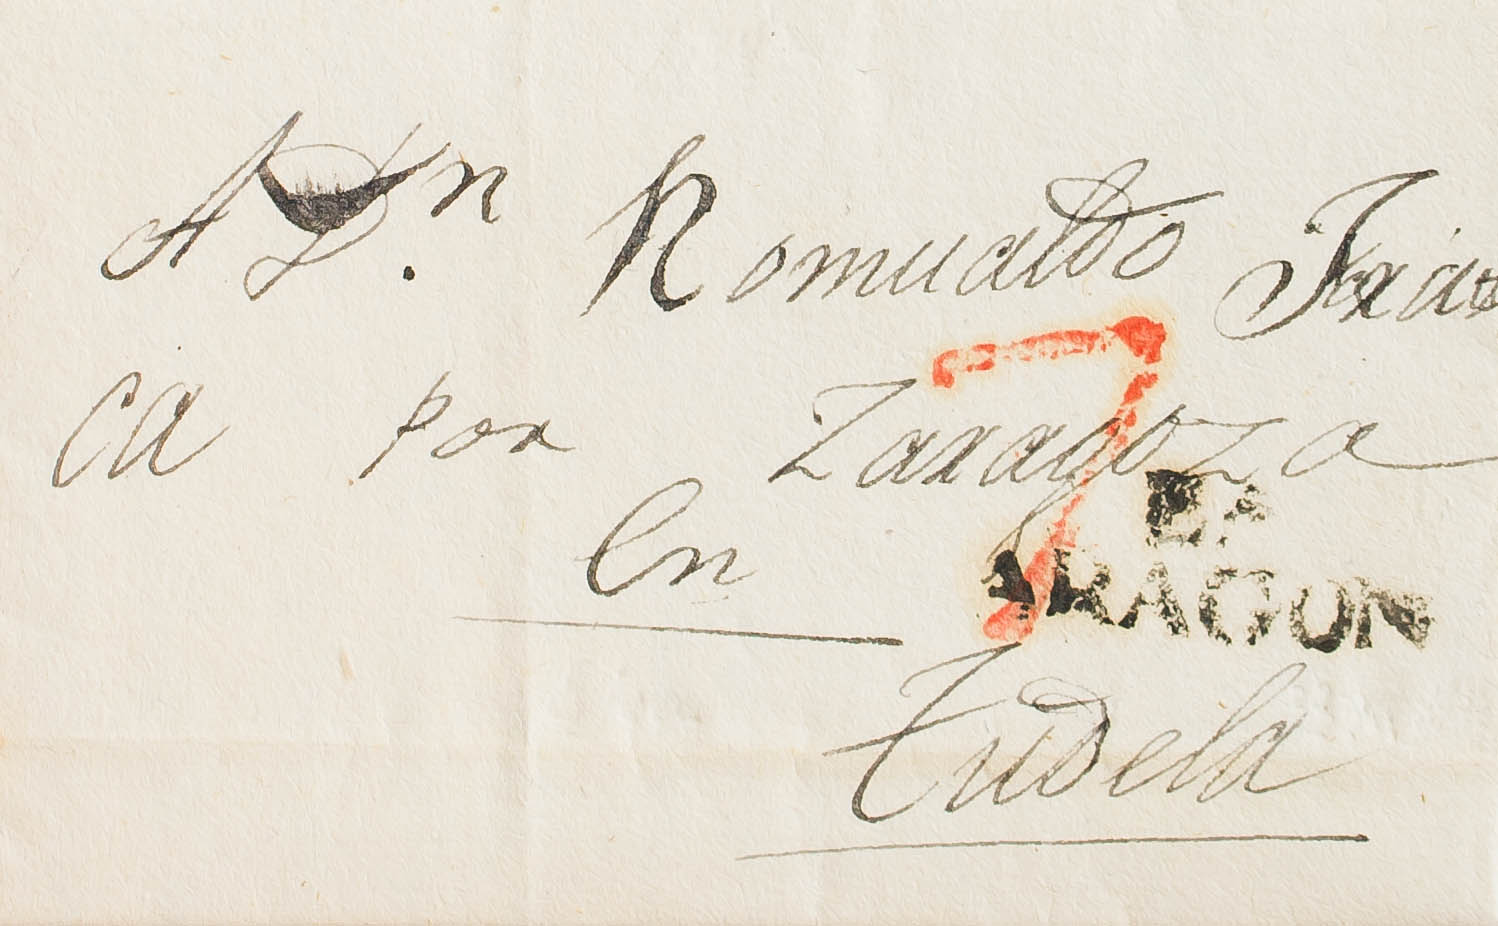 A Dn. Romualdo
ca por Zaragoza
7
BA
ARAGON
En
Tudela